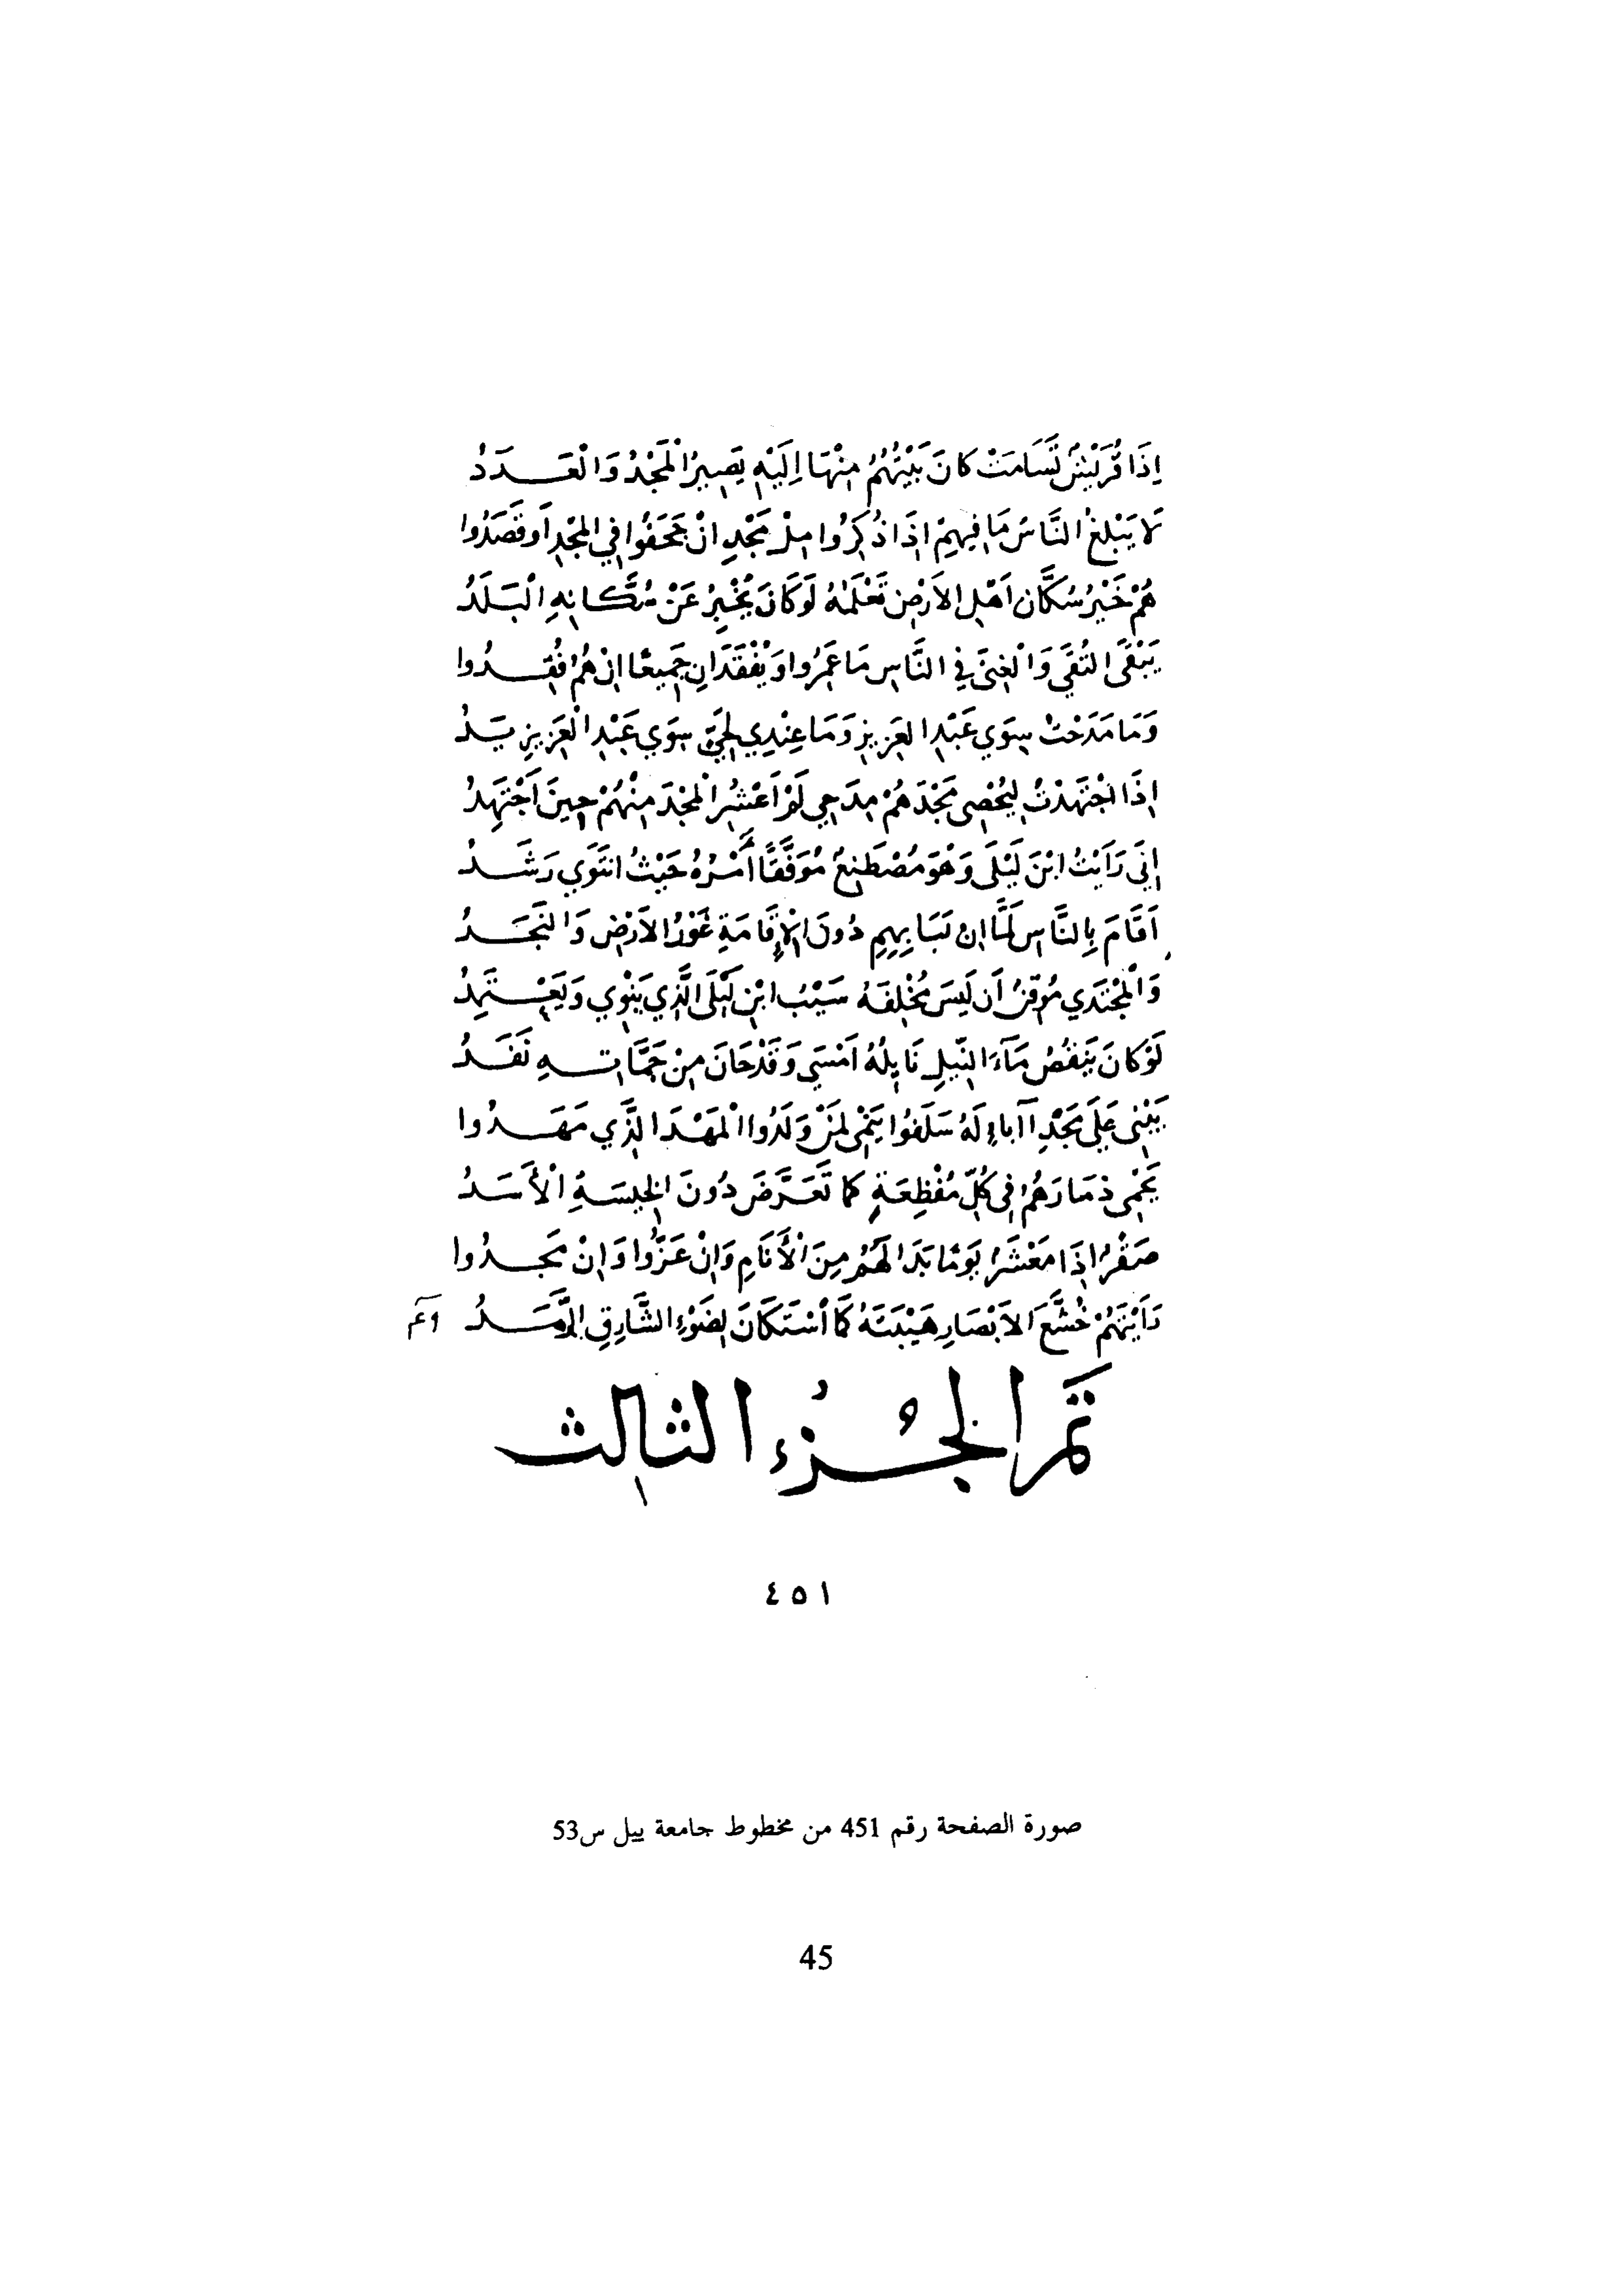 إِذَا قُرَيْشٌ تَسَامَتْ كَانَ بَيْتُهُمُ مِنْهَا إِلَيْهِ يَصِيرُ الْمَجْدُ وَالْعَدَدُ
لَا يَبْلُغُ النَّاسُ مَا فِيهِمْ إِذَا ذُكِرُوا مِلْ مَجْدِ انْ جَحَفُوا فِي الْمَجْدِ أَوْ قَصَدُوا
هُمْ خَيْرُ سُكَّانِ أَهْلِ الأَرْضِ تَعْلَمُهُ لَوْ كَانَ يُخْبِرُ عَنْ سُكَّانِهِ الْبَلَدُ
يَبْقَى التُّقَى وَالْغِنَى فِي النَّاسِ مَا عَمَرُوا وَيُفْقَدَانِ جَمِيعًا إِنْ هُمُ فُقِدُوا
وَمَا مَدَحْتُ سِوَي عَبْدِ العَزِيزِ وَمَا عِنْدِي لِحَيٍّ سِوَي عَبْدِ الْعَزِيزِ يَدُ
إِذَا اجْتَهَدْتُ لِيُحْصِي مَجْدَهُمْ مِدَحِي لَمْ أَعْشُرِ الْمَجْدَ مِنْهُمْ حِينَ أَجْتَهِدُ
إِنِّي رَأَيْتُ ابْنَ لَيْلَى وَهْوَ مُصْطَنِعٌ مُوَفَّقًا أَمْرُهُ حَيْثُ انْتَوَي رَشَدُ
أَقَامَ بِالنَّاسِ لَمَّا ان نَبَا بِهِمِ دُونَ الْإِقَامَةِ غَوْرُ الأَرْضِ وَالنَّجَدُ
وَالْمُجْتَدِي مُوقِنٌ أَن لَيْسَ مُخْلِفَهُ سَيْبُ ابْنِ لَيْلَى الَّذِي يَنْوِي وَيَعْتَمِدُ
لَوْ كَانَ يَنْقُصُ مَآءَ النِّيلِ نَايِلُهُ أَمْسَى وَقَدْ حَانَ مِنْ جَمَّاتِهِ نَفَدُ
يَبْنِي عَلَى مَجْدِ آباءٍ لَهُ سَلَفُوا يَنْمِي لِمَنْ وَلَدُوا الْمَهْدَ الَّذِي مَهَدُوا
يَحْمِي ذِمَارَهُمُ فِي كُلِّ مُفْظِعَةٍ كَمَا تَعَرَّضَ دُونَ الْخِيسَةِ الْأَسَدُ
صَقْرٌ إِذَا مَعْشَرٌ يَوْمًا بَدَا لَهُمُ مِنَ الْأَنَامِ وَإِنْ عَزُّوا وَإِنْ مَجَدُوا
رَأَيْتَهُمْ خُشَّعَ الأَبْصَارِ هَيْبَتَهُ كَمَا اسْتَكَانَ لِضَوْءِ الشَّارِقِ الرَّمِدُ
تَمَّ الْجُزْءُ الثَّالِث
٤٥١
صورة الصفحة رقم 451 من مخطوط جامعة ييل س53
45